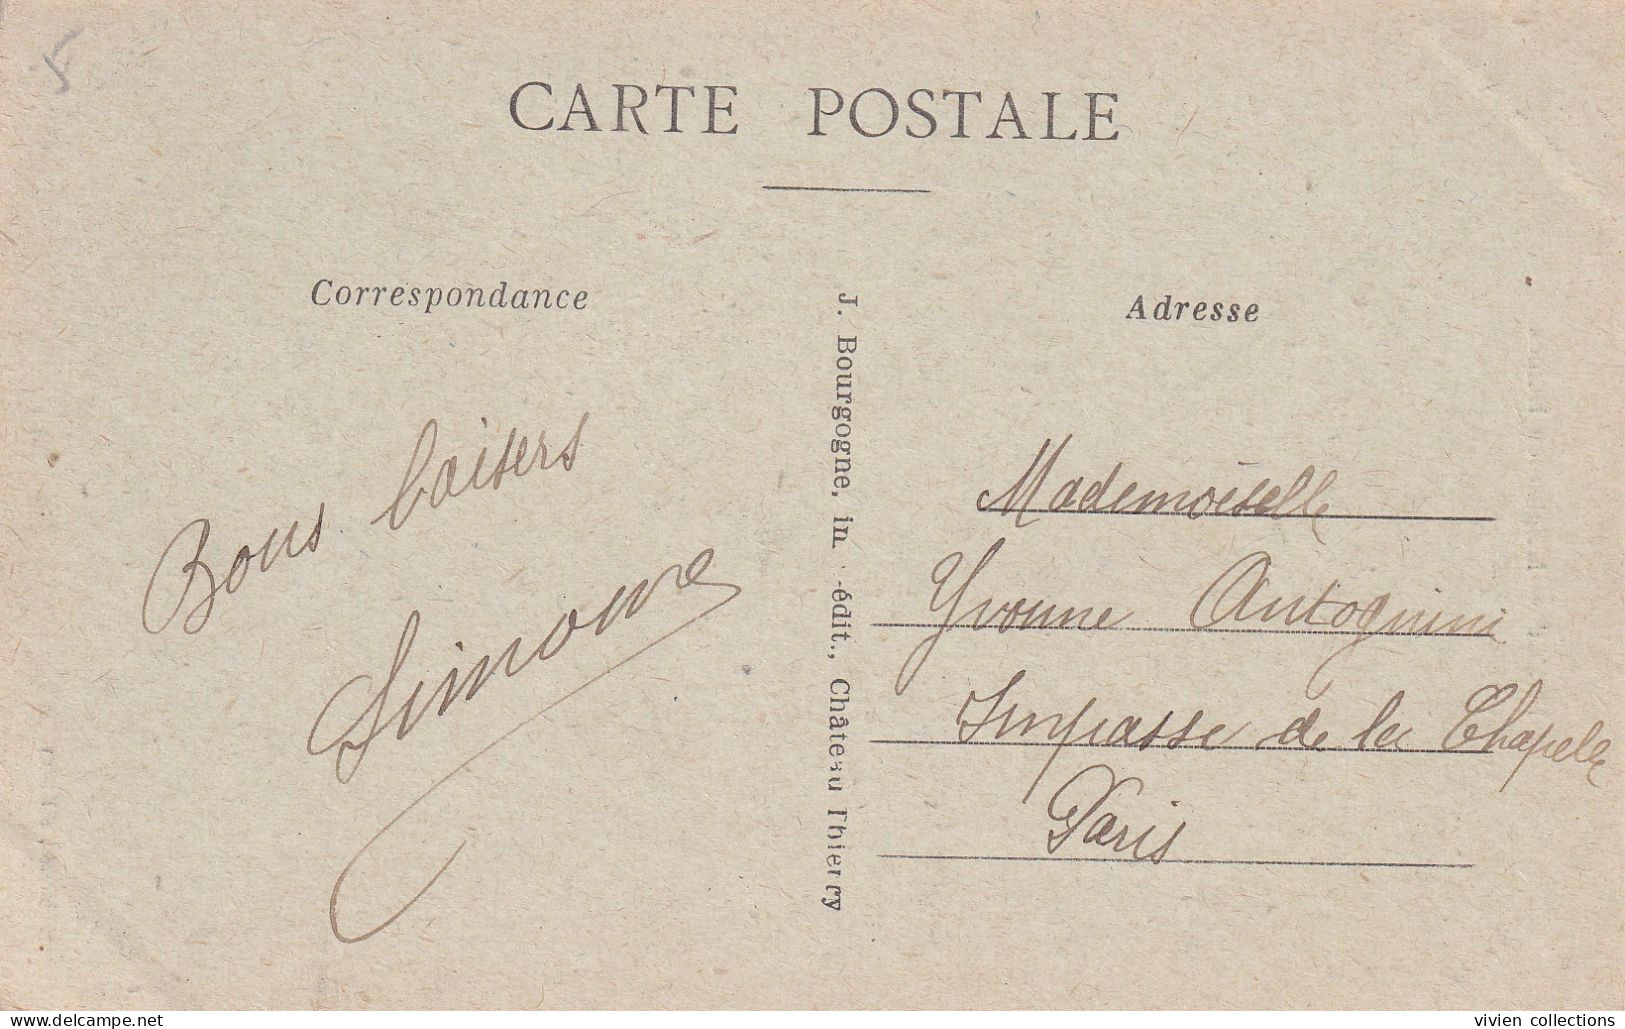 CARTE POSTALE
Correspondance
Adresse
Bons baisers
Simonne
J. Bourgogne, im -édit., Château Thierry
Mademoiselle
Yvonne Antognini
Impasse de la Chapelle
Paris
delcampe.net
vivien collections